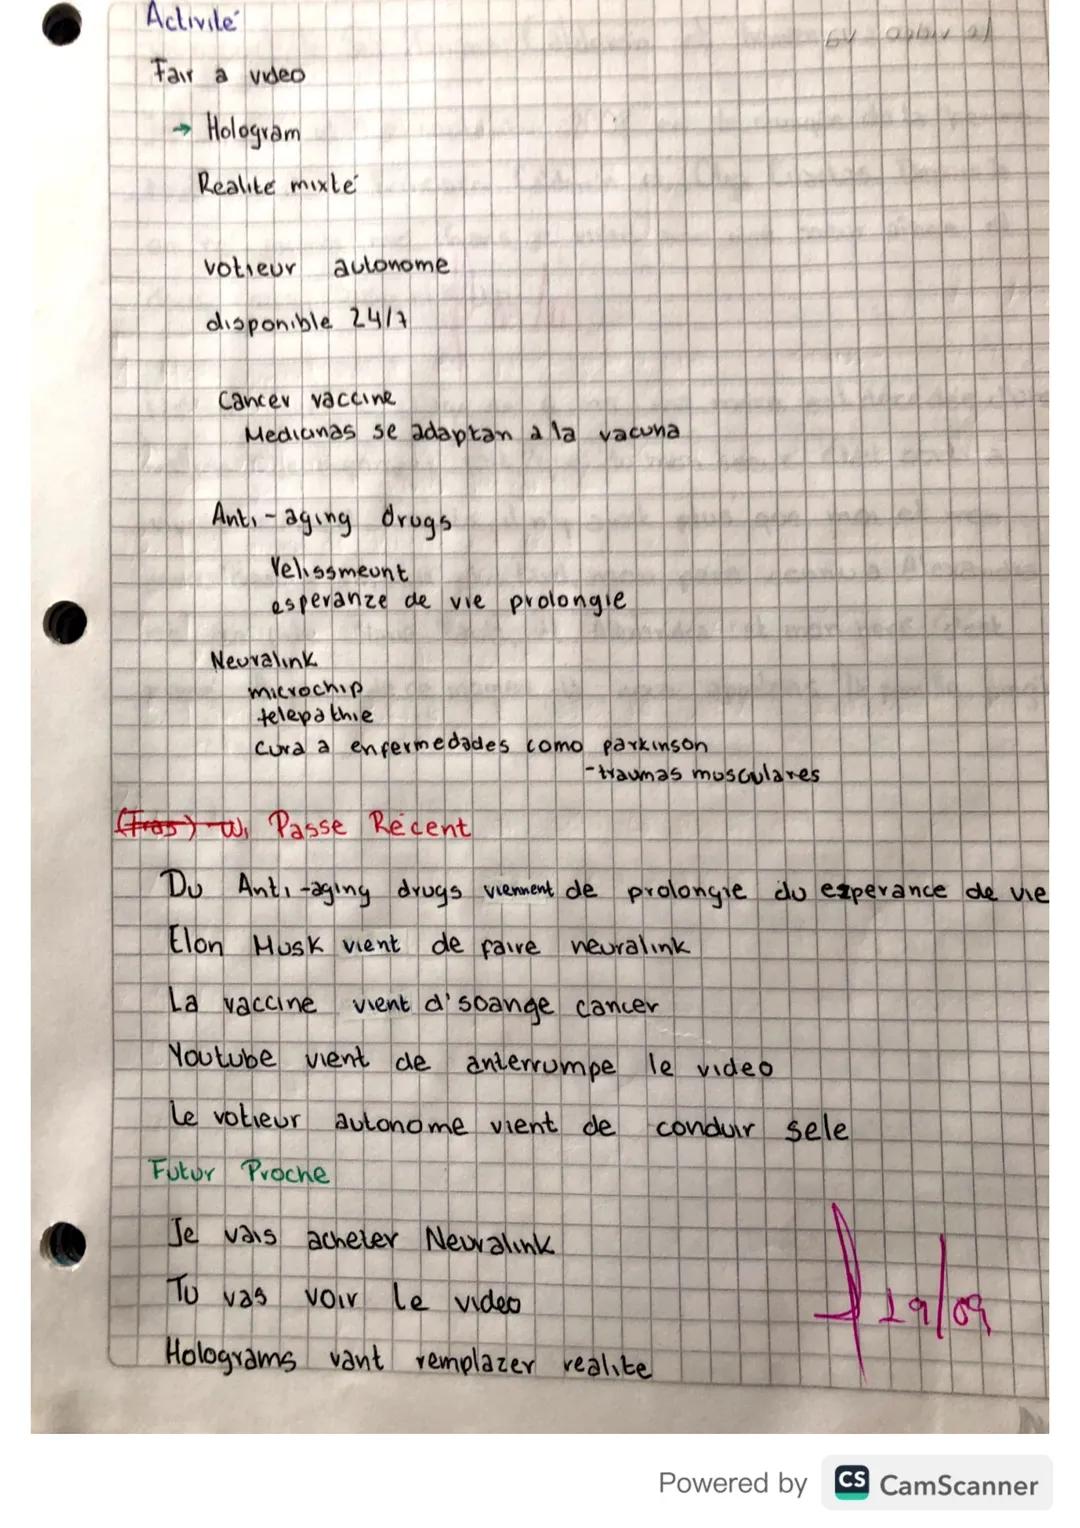 Activité
Fair a video
→ Hologram
Realite mixté
votieur autonome
disponible 24/7
Cancer vaccine
Medicinas se adaptan a la vacuna
Anti-aging drugs
Velissmeunt
esperanze de vie prolongie
Neuralink
microchip
telepathie
cura a enfermedades como parkinson
-traumas musculares
Passe Récent
Du Anti-aging drugs viennent de prolongie du esperance de vie
Elon Musk vient de faire neuralink
La vaccine vient d'soange cancer
Youtube vient de anterrumpe le video
Le votieur autonome vient de conduir sele
Futur Proche
Je vais acheter Neuralink
Tu vas voir le video
19/09
Holograms vant remplazer realite
Powered by CS CamScanner